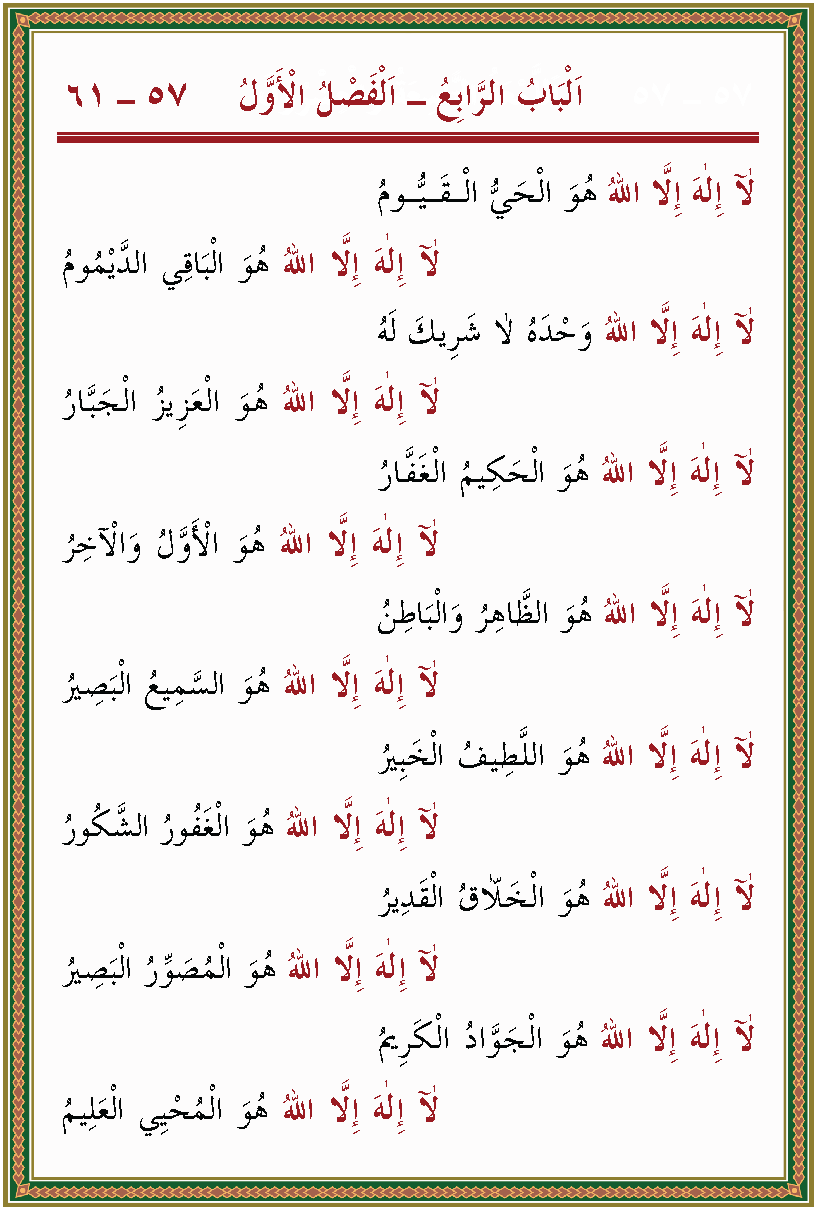 اَلْبَابُ الرَّابِعُ – اَلْفَصْلُ الْأَوَّلُ ٥٧ – ٦١
لَآ إِلٰهَ إِلَّا اللهُ هُوَ الْحَيُّ الْـقَـيُّـومُ
لَآ إِلٰهَ إِلَّا اللهُ هُوَ الْبَاقِي الدَّيْمُومُ
لَآ إِلٰهَ إِلَّا اللهُ وَحْدَهُ لَا شَرِيكَ لَهُ
لَآ إِلٰهَ إِلَّا اللهُ هُوَ الْعَزِيزُ الْجَبَّارُ
لَآ إِلٰهَ إِلَّا اللهُ هُوَ الْحَكِيمُ الْغَفَّارُ
لَآ إِلٰهَ إِلَّا اللهُ هُوَ الْأَوَّلُ وَالْآخِرُ
لَآ إِلٰهَ إِلَّا اللهُ هُوَ الظَّاهِرُ وَالْبَاطِنُ
لَآ إِلٰهَ إِلَّا اللهُ هُوَ السَّمِيعُ الْبَصِيرُ
لَآ إِلٰهَ إِلَّا اللهُ هُوَ اللَّطِيفُ الْخَبِيرُ
لَآ إِلٰهَ إِلَّا اللهُ هُوَ الْغَفُورُ الشَّكُورُ
لَآ إِلٰهَ إِلَّا اللهُ هُوَ الْخَلَّاقُ الْقَدِيرُ
لَآ إِلٰهَ إِلَّا اللهُ هُوَ الْمُصَوِّرُ الْبَصِيرُ
لَآ إِلٰهَ إِلَّا اللهُ هُوَ الْجَوَّادُ الْكَرِيمُ
لَآ إِلٰهَ إِلَّا اللهُ هُوَ الْمُحْيِي الْعَلِيمُ